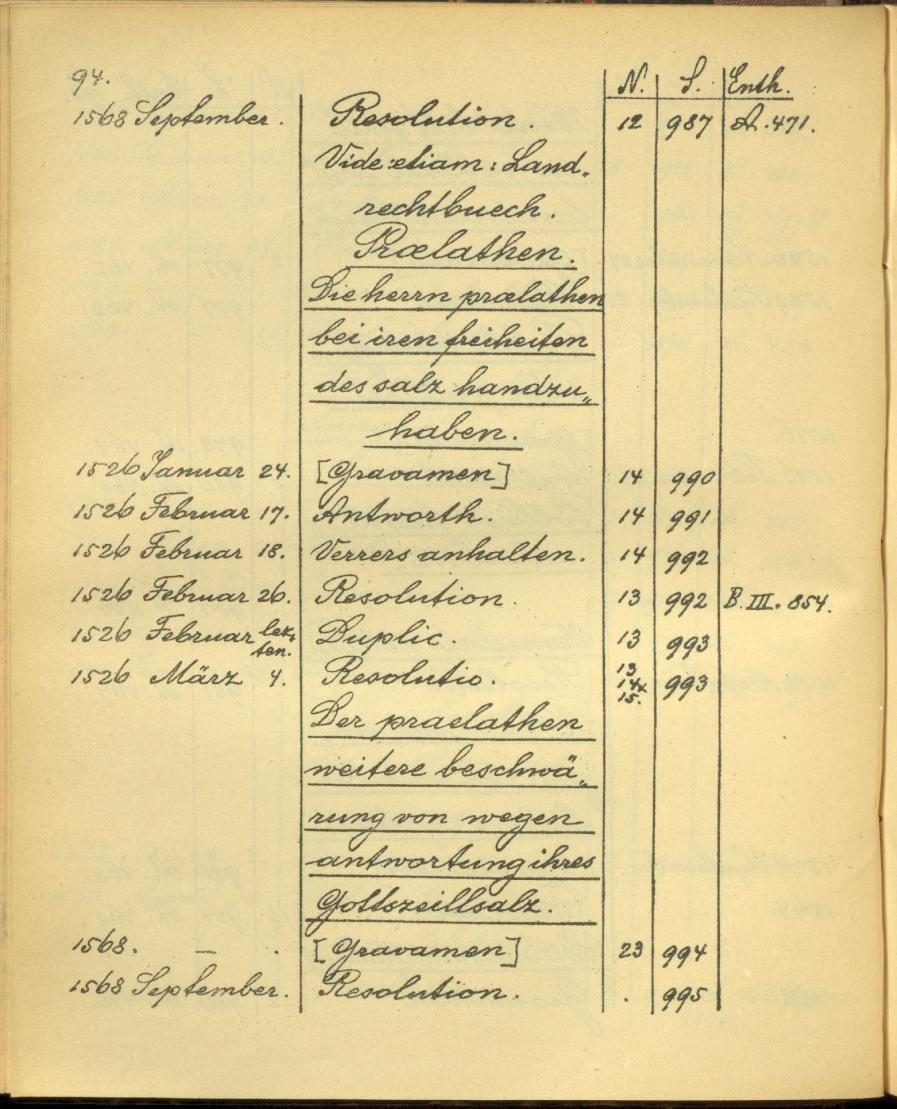 94.
N. S. Enth.
1568 September. Resolution. 12 987 A. 471.
Vide: etiam: Land„
rechtbuech.
Prælathen.
Die herrn prælathen
bei iren freiheiten
des salz handzu„
haben.
1526 Januar 24. [Gravamen] 14 990
1526 Februar 17. Antworth. 14 991
1526 Februar 18. Verrers anhalten. 14 992
1526 Februar 26. Resolution. 13 992 B. III. 854.
1526 Februar lez„ten. Duplic. 13 993
1526 März 4. Resolutio. 13 14 x 15. 993
Der praelathen
weitere beschwä„
rung von wegen
antwortung ihres
Gottszeillsalz.
1568. – . [Gravamen] 23 994
1568 September. Resolution. . 995